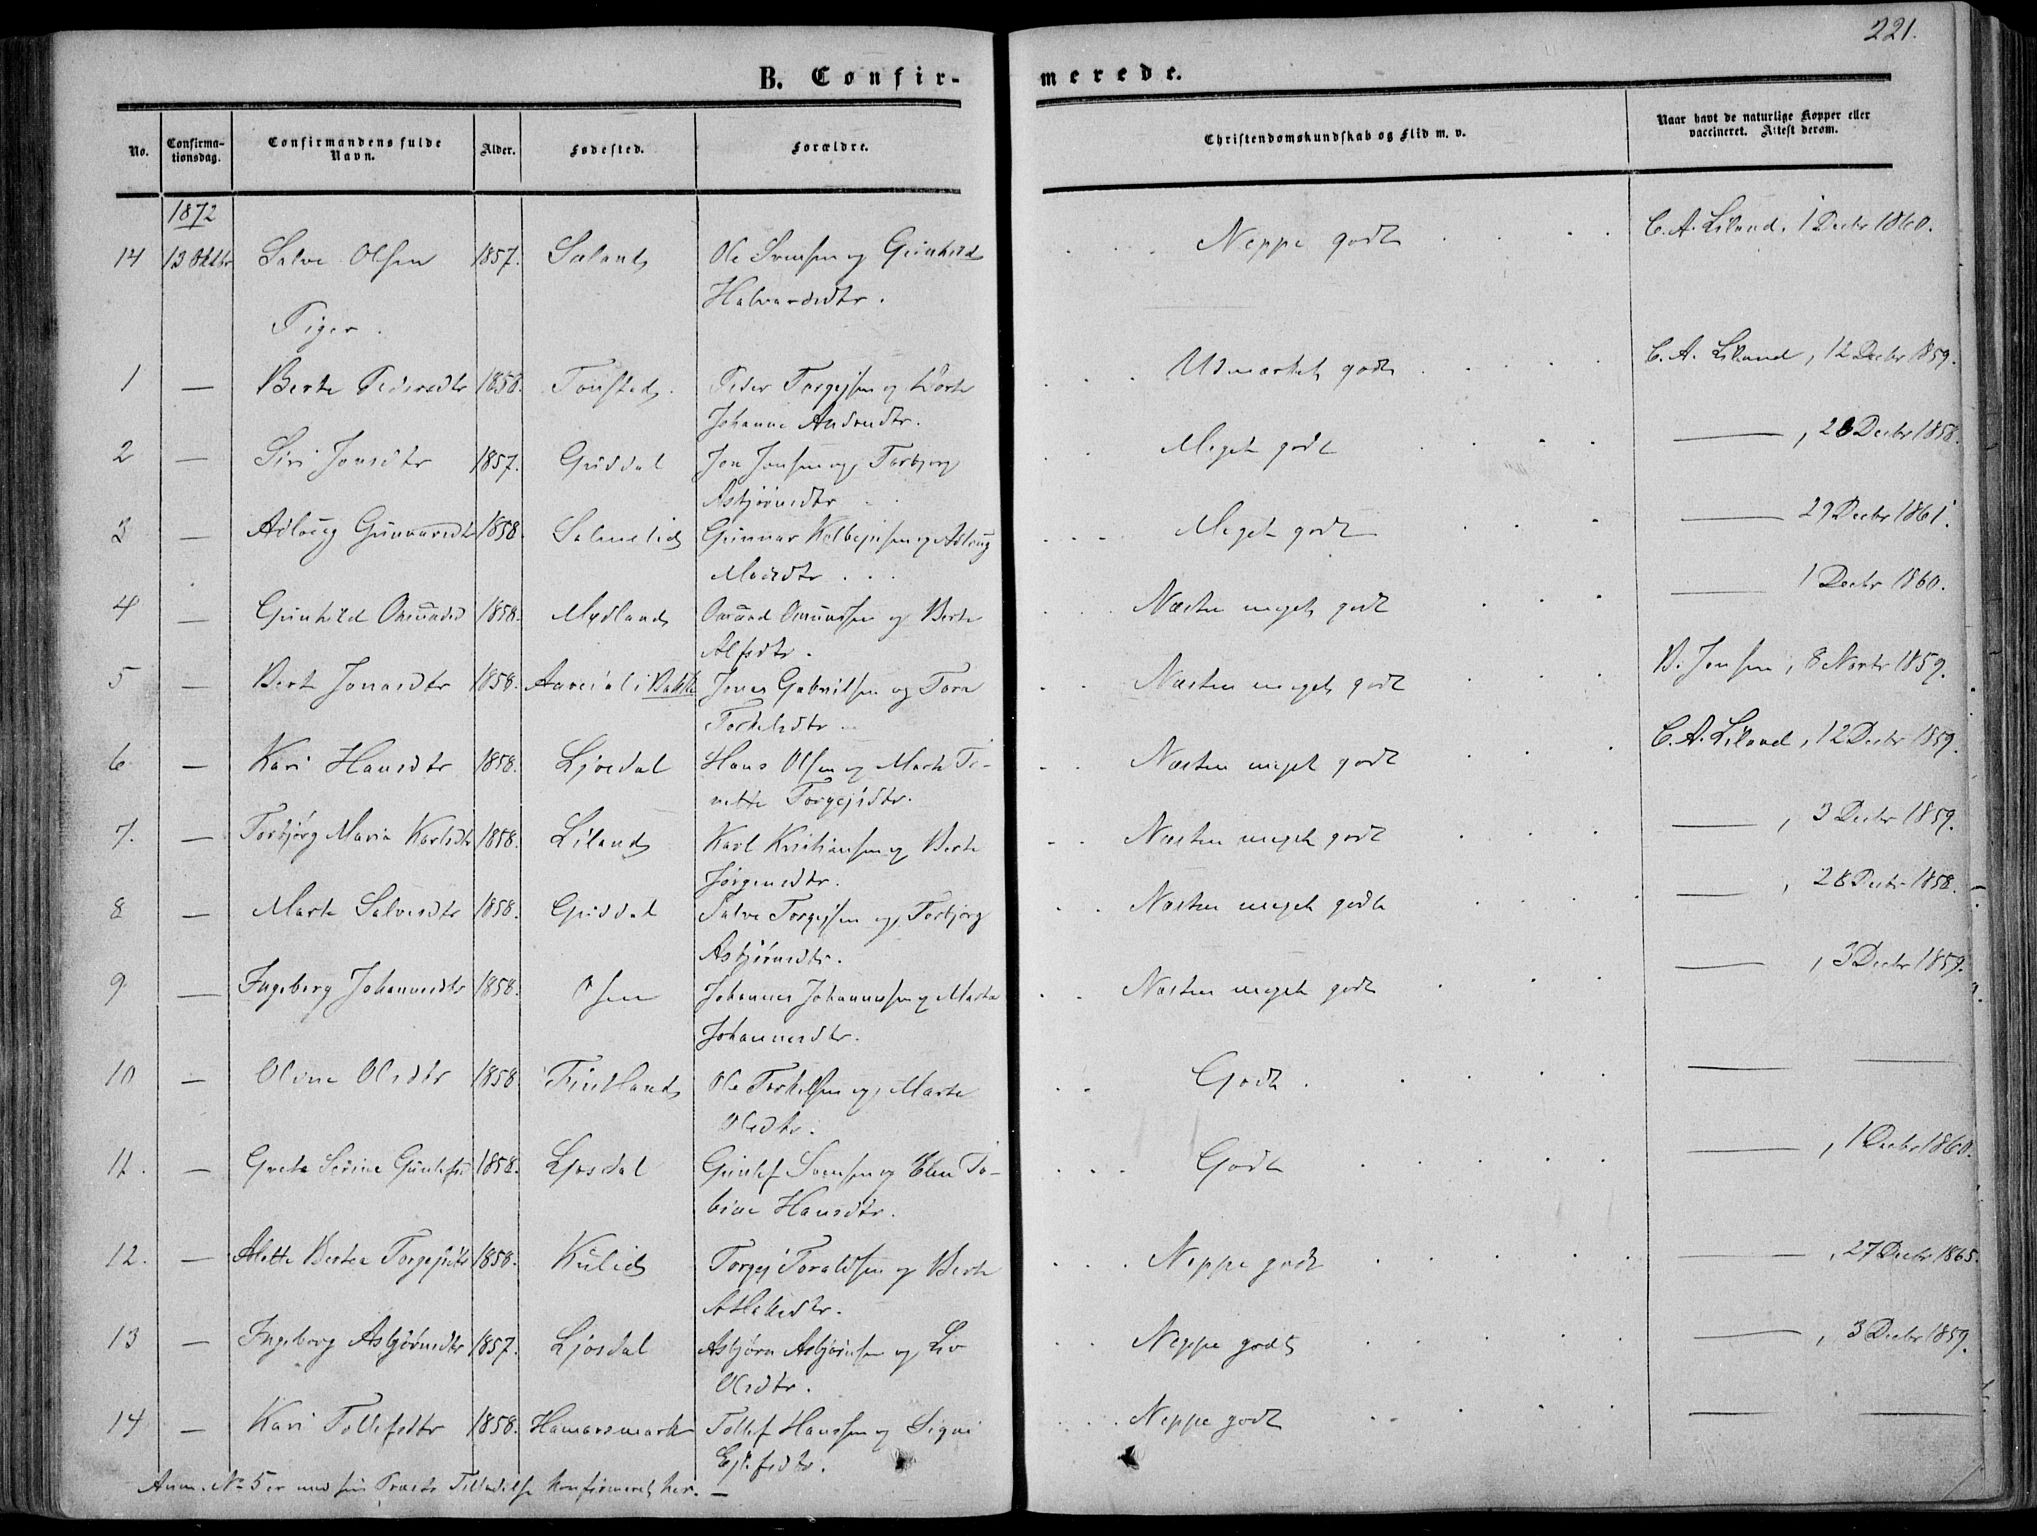 221.
B. Confir- merede.
No. Confirma-tionsdag. Confirmandens fulde Navn. Alder. Fødested. Forældre. Christendomskundskab og Flid m. v. Naar havt de naturlige Kopper eller vaccineret. Attest derom.
1872
14 13 Oktbr Salve Olsen 1857. Seland Ole Svensen og Gunhild Neppe godt C. A. Liland, 1 Decbr 1860.
Halvardsdtr.
Piger.
1 — Berte Pedersdtr 1858. Tonstad. Peder Torgejsen og Dorte Udmærket godt C. A. Liland, 12 Decbr 1859.
Johanne Andersdtr.
2 — Siri Jonsdtr 1857. Guddal Jon Jonsen og Torbjørg Meget godt — , 28 Decbr 1858.
Asbjørnsdtr
3 — Adloug Gunnarsdtr 1858. Salmelid Gunnar Kolbejnsen og Aslaug Meget godt — 29 Decbr 1861.
Madsdtr
4 — Gunhild Omundsd 1858. Mydland Omund Omundsen og Berte Næsten meget godt — 1 Decbr 1860.
Alfsdtr.
5 — Berte Jonasdtr 1858. i Bakke Jonas Gabrielsen og Tora Næsten meget godt B. Jensen, 8 Novbr 1859.
Torkelsdtr
6 — Kari Hansdtr 1858. Ljosdal Hans Olsen og Marte Te- Næsten meget godt C. A. Liland, 12 Decbr 1859.
nette Torgejsdtr.
7. — Torbjørg Maria Karlsdtr 1858. Liland Karl Kristiansen og Berte Næsten meget godt — , 3 Decbr 1859.
Jørgensdtr.
8 — Marte Salvesdtr 1858. Guddal Salve Torgejsen og Torbjørg Næsten meget godt — , 28 Decbr 1858.
Asbjørnsdtr.
9 — Ingeborg Johannesdtr 1858. Osen Johannes Johannessen og Marta Næsten meget godt — , 3 Decbr 1859.
Johannesdtr.
10 — Oline Olsdtr 1858. Fintland Ole Torkelsen og Marte Godt. — —
Olsdtr.
11. — Greta Serine Guntefsd 1858. Ljosdal Guntef Svensen og Elen To- Godt — , 1 Decbr 1860.
bine Hansdtr.
12. — Alette Bertea Torgejsdtr 1858. Kulid Torgej Toraldsen og Berte Neppe godt — , 27 Decbr 1865.
Atlaksdtr.
13 — Ingeborg Asbjørnsdtr 1857. Ljosdal Asbjørn Asbjørnsen og Liv Neppe godt — , 3 Decbr 1859.
Olsdtr.
14 — Kari Tollefsdtr 1858. Hamarsmark Tollef Hansen og Signi Neppe godt — —
Ejlefsdtr.
Anm. No 5 er med sin Præsts Tilladelse konfirmeret her. —